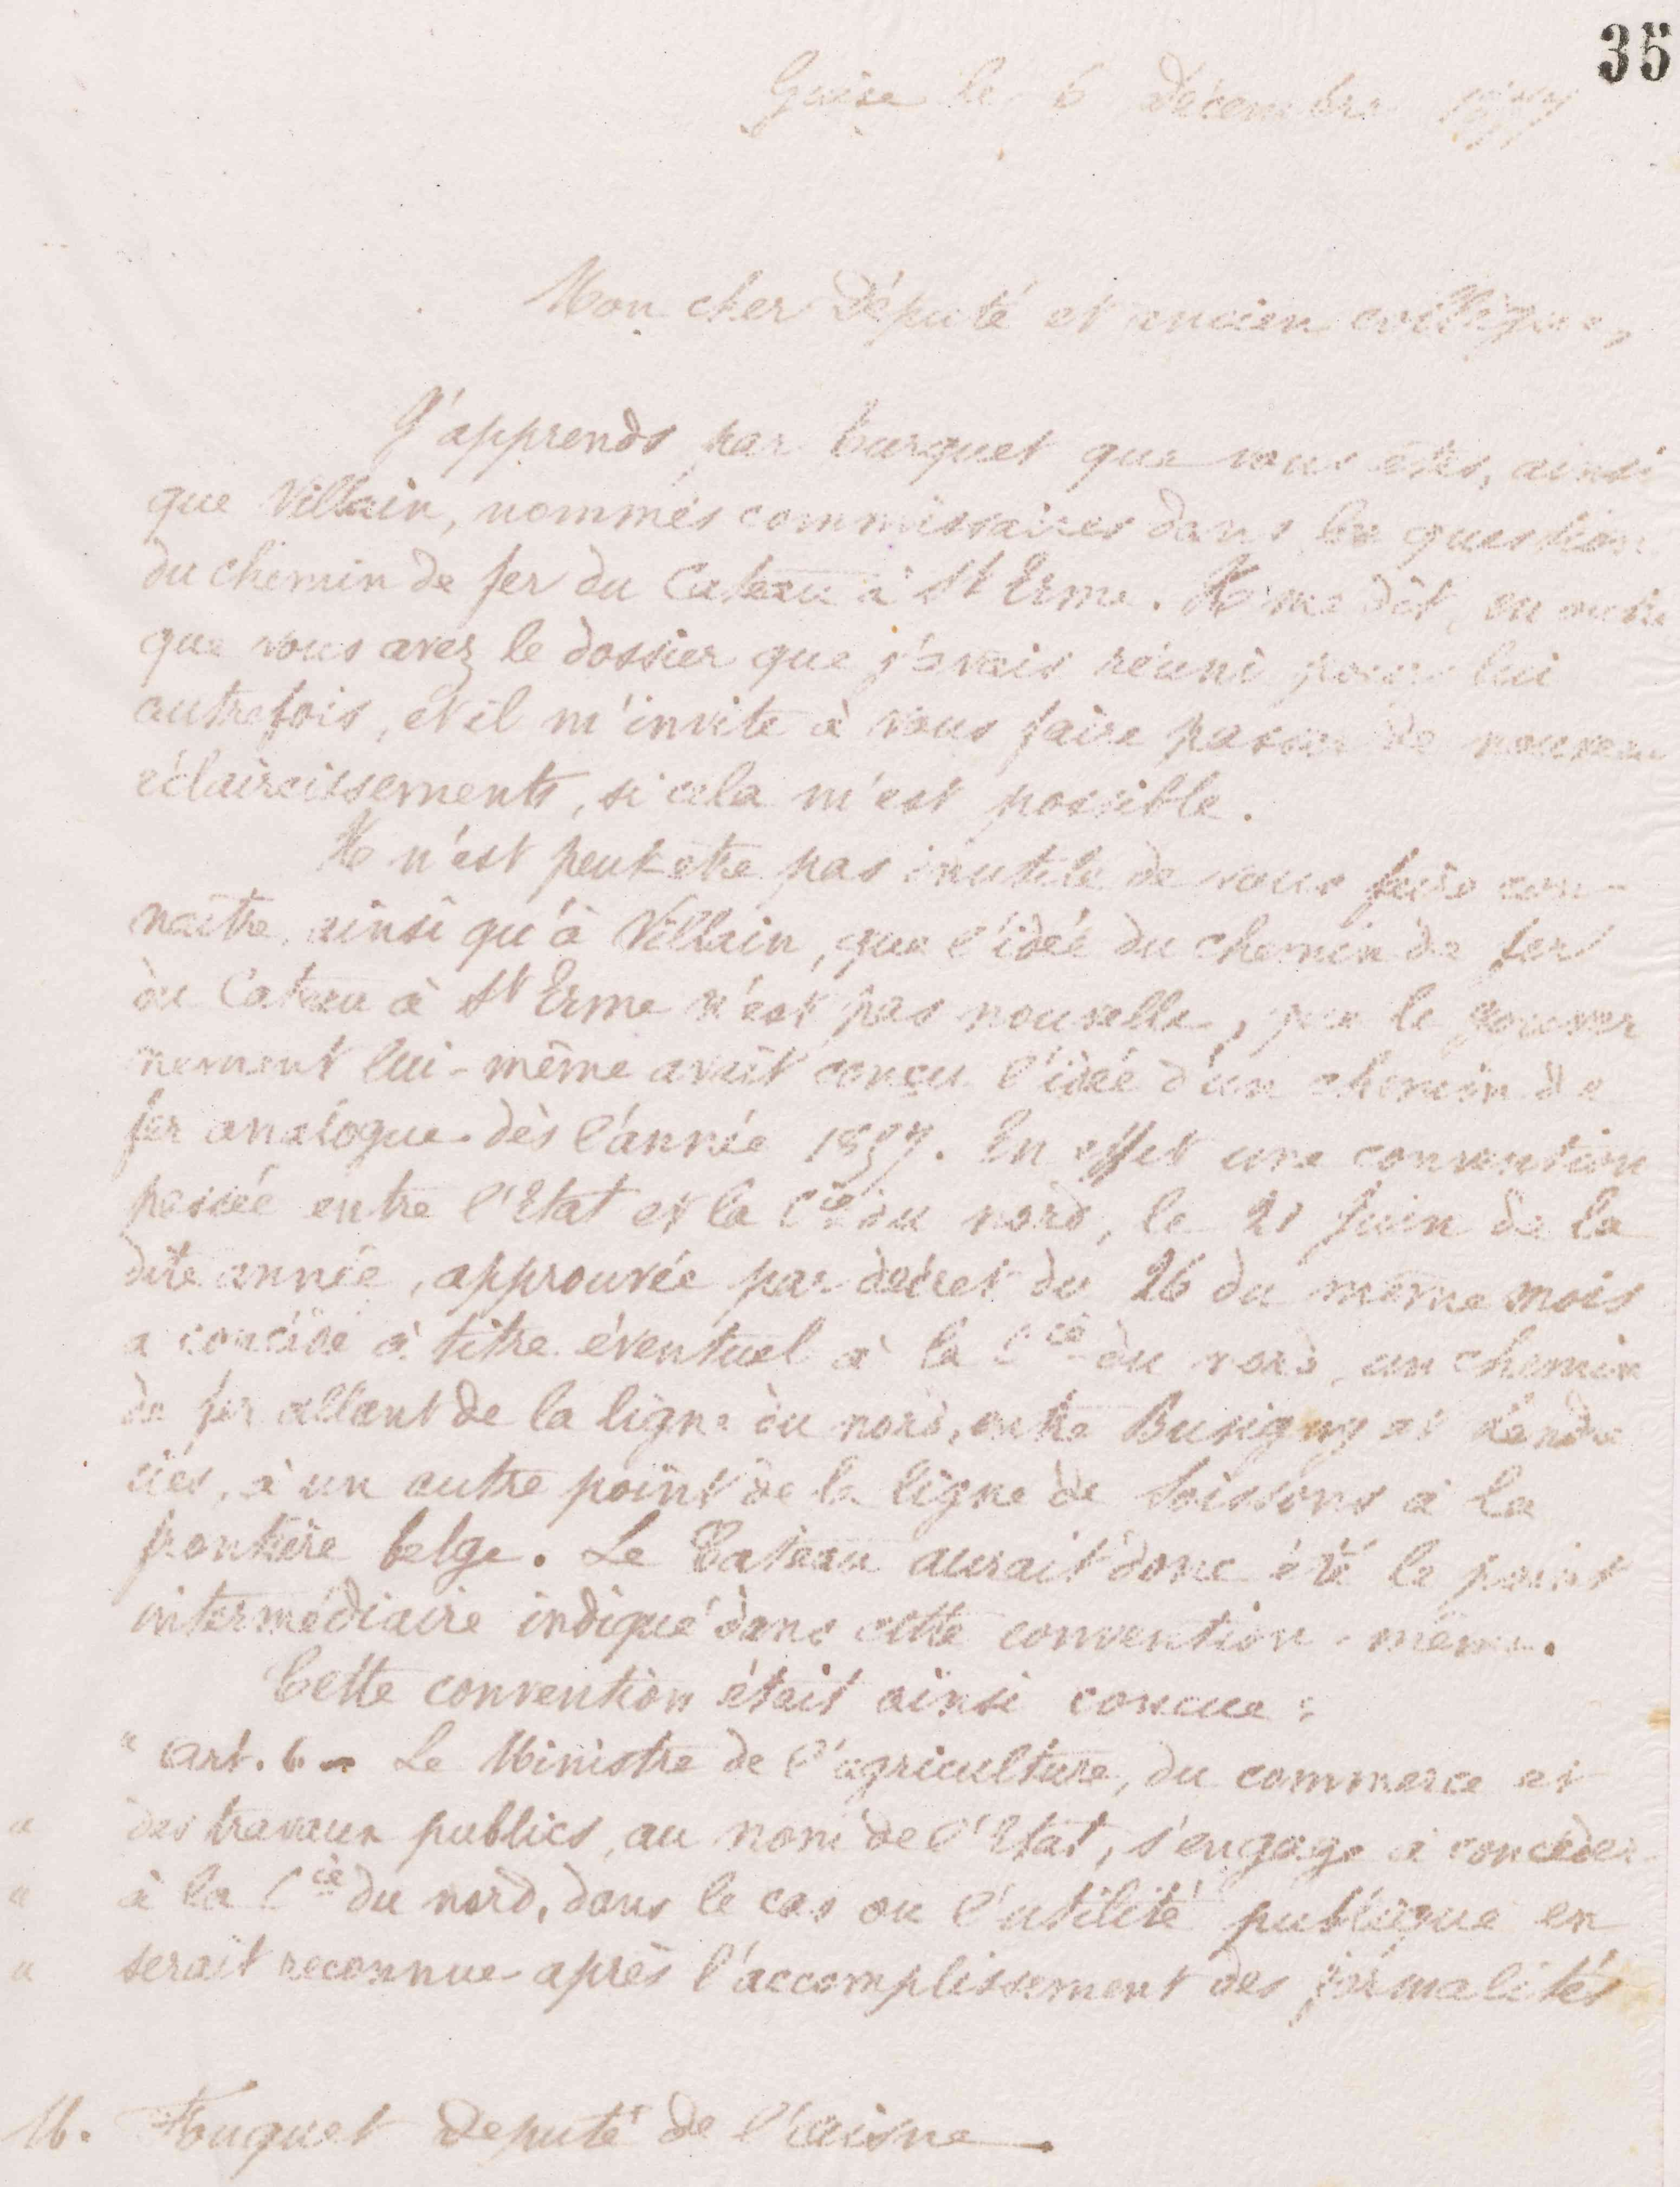 35
Guise le 6 Décembre
Mon cher Député et ancien collègue,
J'apprends par Turquet que vous êtes, ainsi
que Villain, nommés commissaires dans la question
du chemin de fer du Cateau à St Erme. Il me dit, en outre
que vous avez le dossier que j'avais réuni pour lui
autrefois, et il m'invite à vous faire passer de nouveaux
éclaircissements, si cela m'est possible.
Il n'est peut-etre pas inutile de vous faire con-
naitre, ainsi qu'à Villain, que l'idée du chemin de fer
du Cateau à St Erme n'est pas nouvelle, que le gouver
nement lui-même avait conçu l'idée d'un chemin de
fer analogue dès l'année 1857. En effet une convention
passée entre l'Etat et la Cie du nord, le 21 Juin de la
dite année, approuvée par décret du 26 du même mois
a concédé à titre éventuel à la Cie du nord, un chemin
de fer allant de la ligne du nord, entre Busigny et Landre
cies, à un autre point de la ligne de Soissons à la
frontière belge. Le Cateau aurait donc été le point
intermédiaire indiqué dans cette convention même.
Cette convention était ainsi concue :
" art. 6 - Le Ministre de l'agriculture, du commerce et
" des travaux publics, au nom de l'Etat, s'engage à concéder
" à la Cie du nord, dans le cas ou l'utilité publique en
" serait reconnue après l'accomplissement des formalités
M. Fouquet député de l'aisne